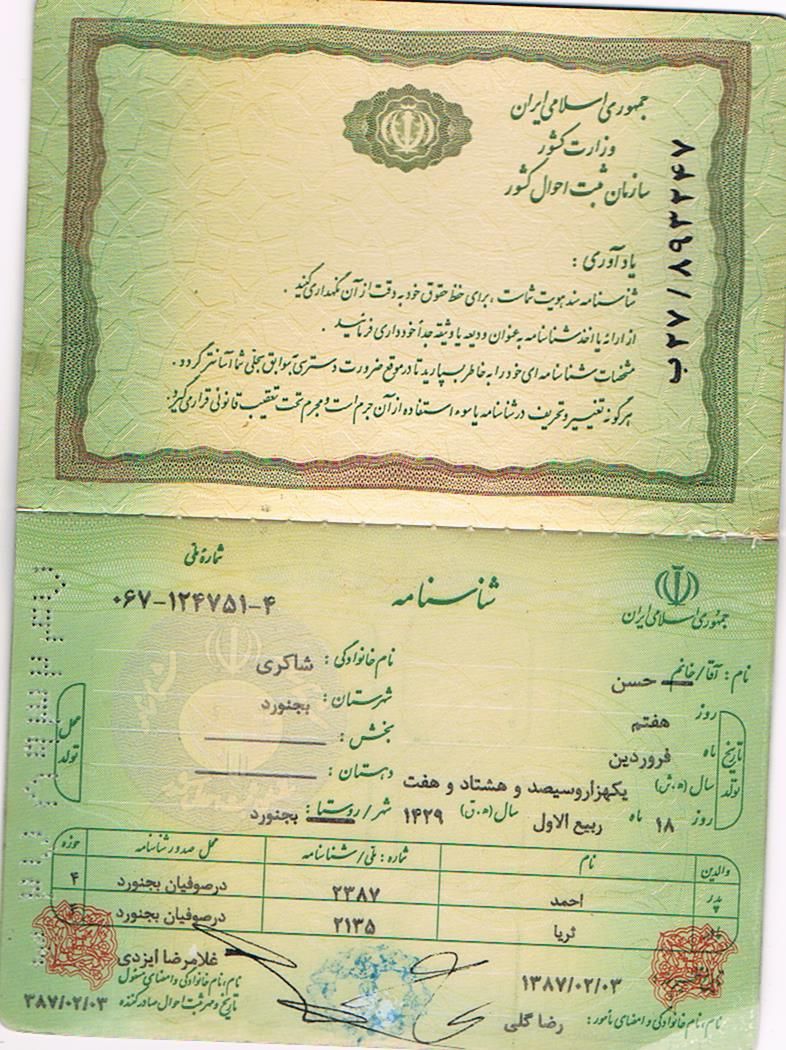 جمهوری اسلامی ایران
وزارت کشور
سازمان ثبت احوال کشور
ب۲۷/۸۹۳۲۴۷
یادآوری :
شناسنامه سند هویت شماست ، برای حفظ حقوق خود به دقت از آن نگهداری کنید .
از ارائه یا اخذ شناسنامه به عنوان ودیعه یا وثیقه جداً خودداری فرمائید .
مشخصات شناسنامه ای خود را به خاطر بسپارید تا در موقع ضرورت دسترسی به سوابق سجلی شما آسانتر گردد .
هرگونه تغییر و تحریف در شناسنامه یا سوء استفاده از آن جرم است و مجرم تحت تعقیب قانونی قرار می گیرد.
جمهوری اسلامی ایران
شناسنامه
شماره ملی
۰۶۷-۱۲۴۷۵۱-۴
نام : آقا/خانم حسن
نام خانوادگی : شاکری
تاریخ تولد
روز هفتم
ماه فروردین
سال (ه.ش) یکهزاروسیصد و هشتاد و هفت
روز ۱۸ ماه ربیع الاول سال (ه.ق) ۱۴۲۹
محل تولد
شهرستان : بجنورد
بخش :
دهستان :
شهر/روستا : بجنورد
والدین نام شماره : ملی/شناسنامه محل صدور شناسنامه حوزه
پدر احمد ۲۳۸۷ درصوفیان بجنورد ۴
مادر ثریا ۲۱۳۵ درصوفیان بجنورد
۱۳۸۷/۰۲/۰۳
نام، نام خانوادگی و امضای مأمور : رضا گلی
غلامرضا ایزدی
نام، نام خانوادگی و امضای مسئول
تاریخ و مهر ثبت احوال صادرکننده ۳۸۷/۰۲/۰۳